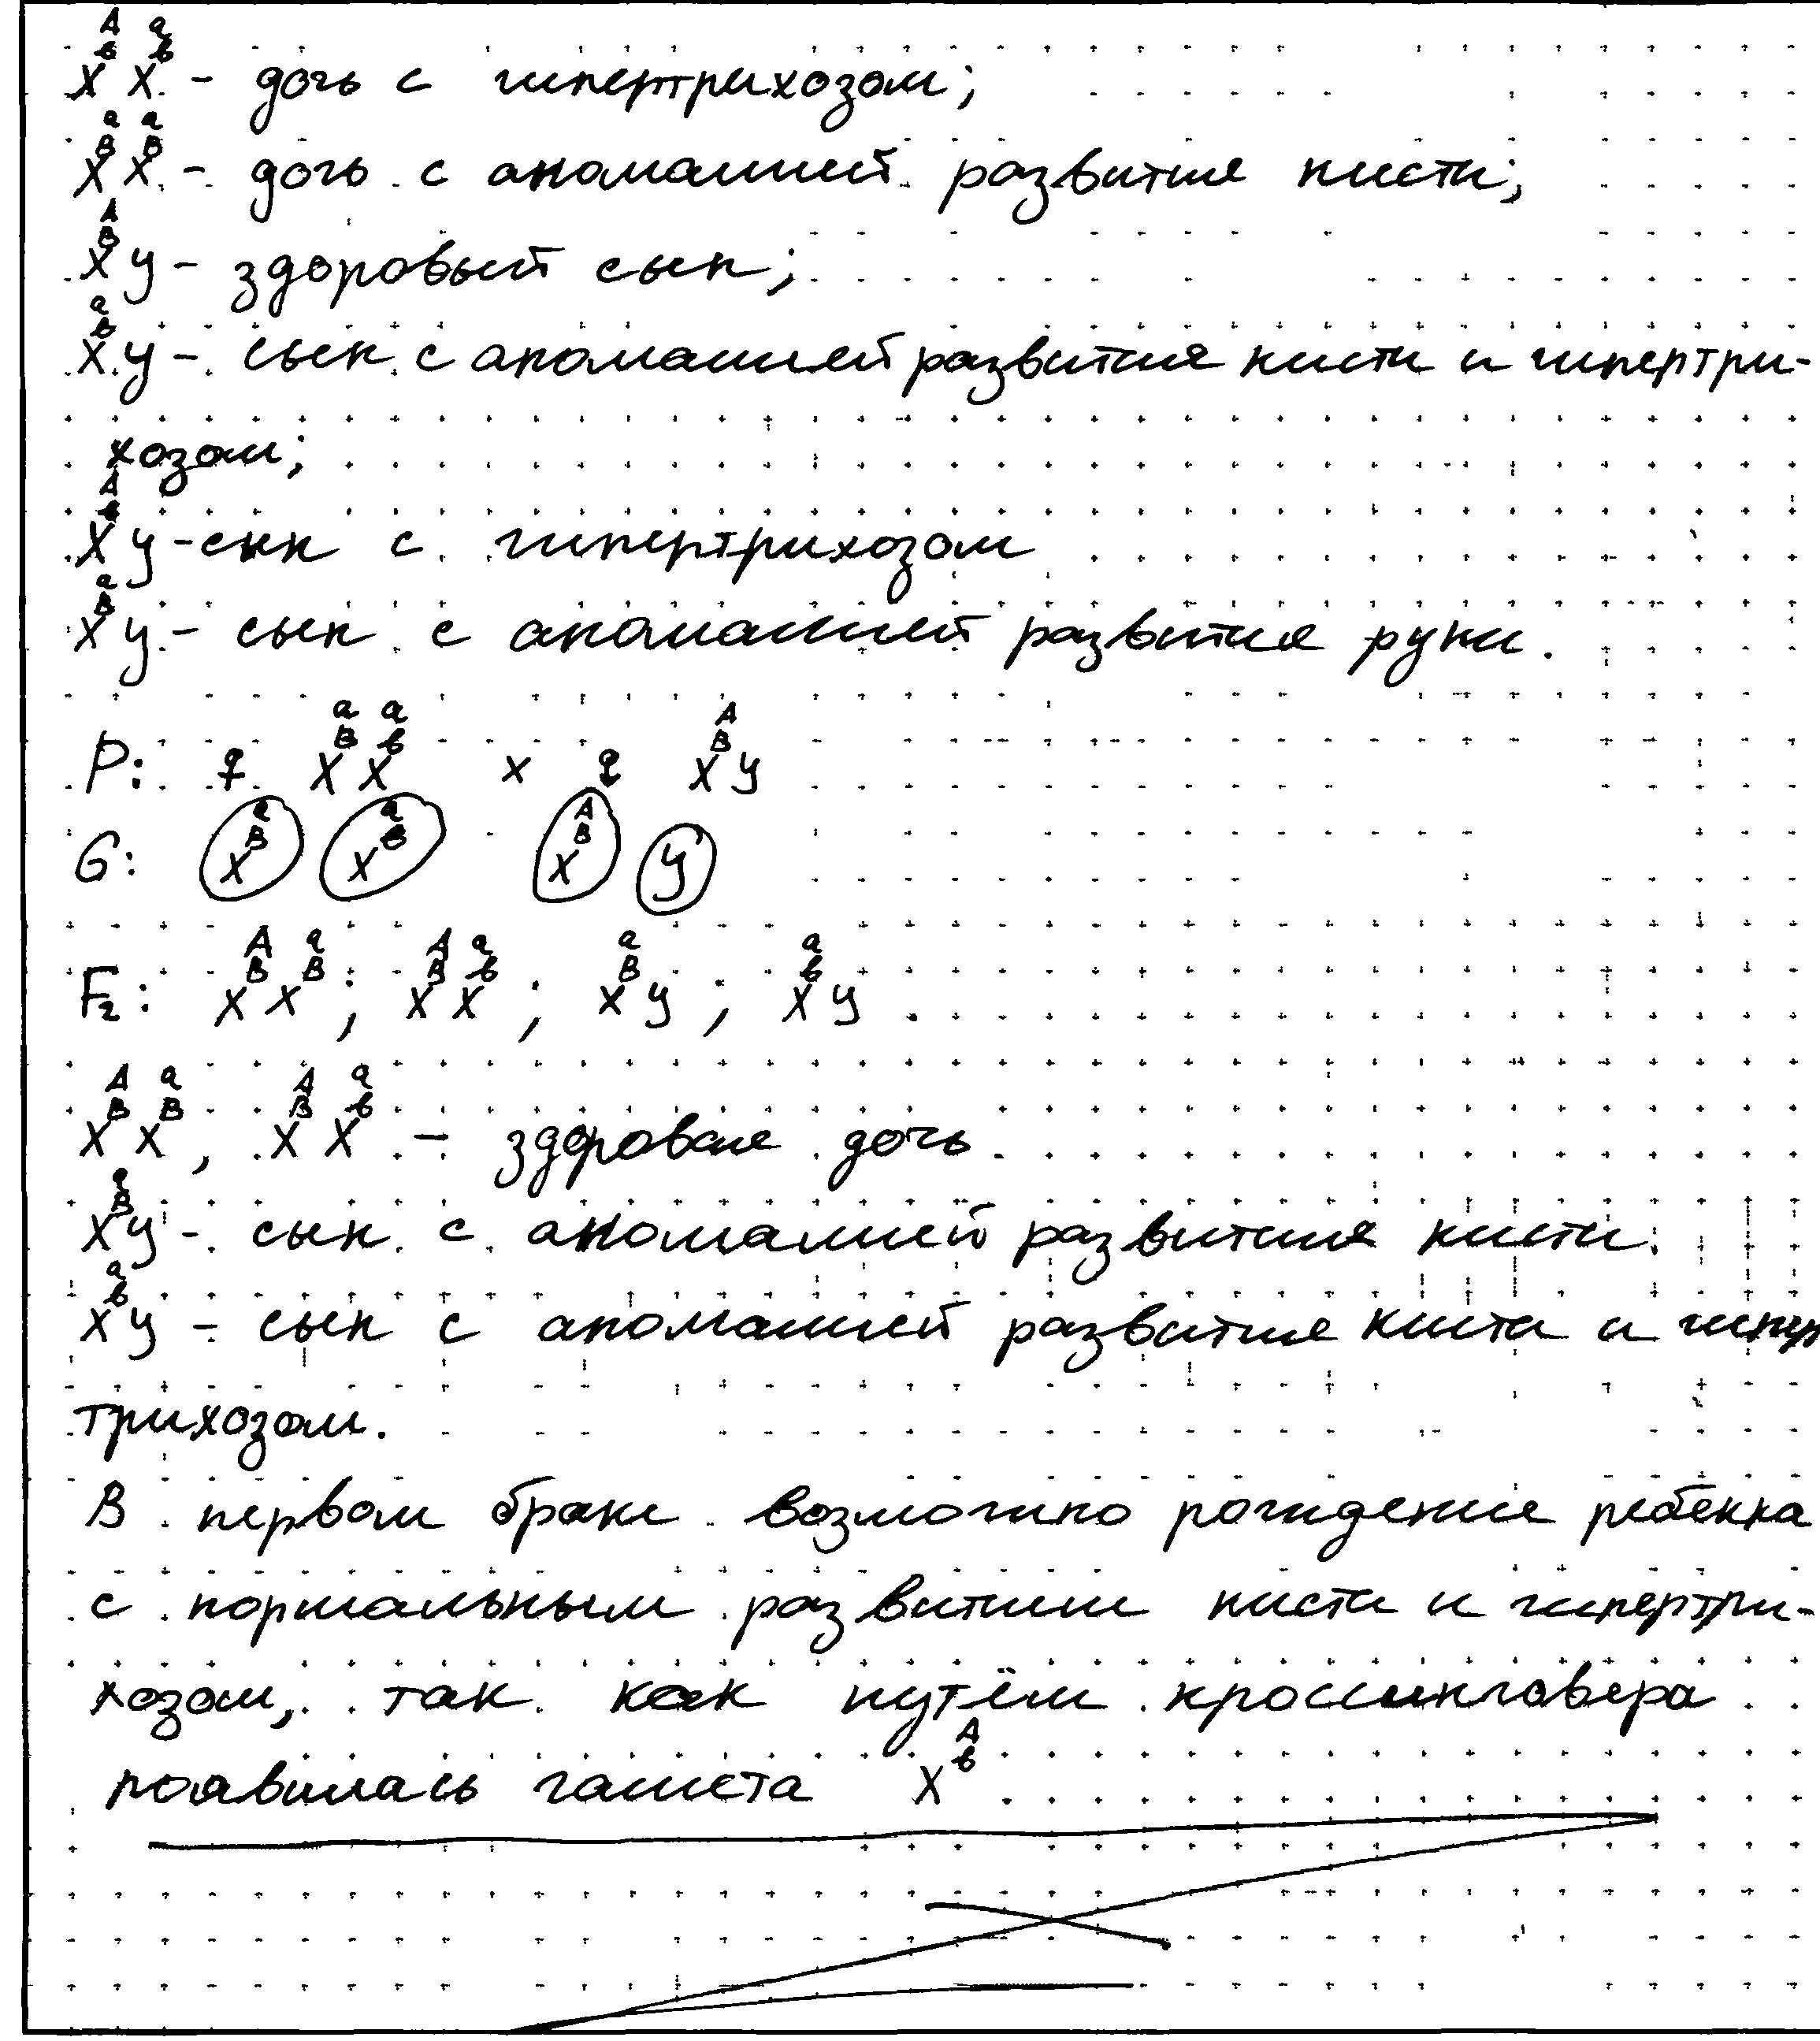 X^A_в X^а_в - дочь с гипертрихозом;
X^а_В X^а_В - дочь с аномалией развития кисти;
X^А_В У - здоровый сын;
X^а_в У - сын с аномалией развития кисти и гипертри-
хозом;
X^А_в У - сын с гипертрихозом
X^а_В У - сын с аномалией развития руки.
P: ♀ X^а_В X^а_в x ♀ X^А_В У
G: X^а_В X^а_в X^А_В У
F2: X^А_В X^а_В; X^А_В X^а_в; X^а_В У; X^а_в У.
X^А_В X^а_В, X^А_В X^а_в - здоровые дочь.
X^а_В У - сын с аномалией развития кисти.
X^а_в У - сын с аномалией развития кисти и гипер
трихозом.
В первом браке возможно рождение ребёнка
с нормальным развитием кисти и гипертри-
хозом, так как путём кроссинговера
появилась гамета X^А_в.